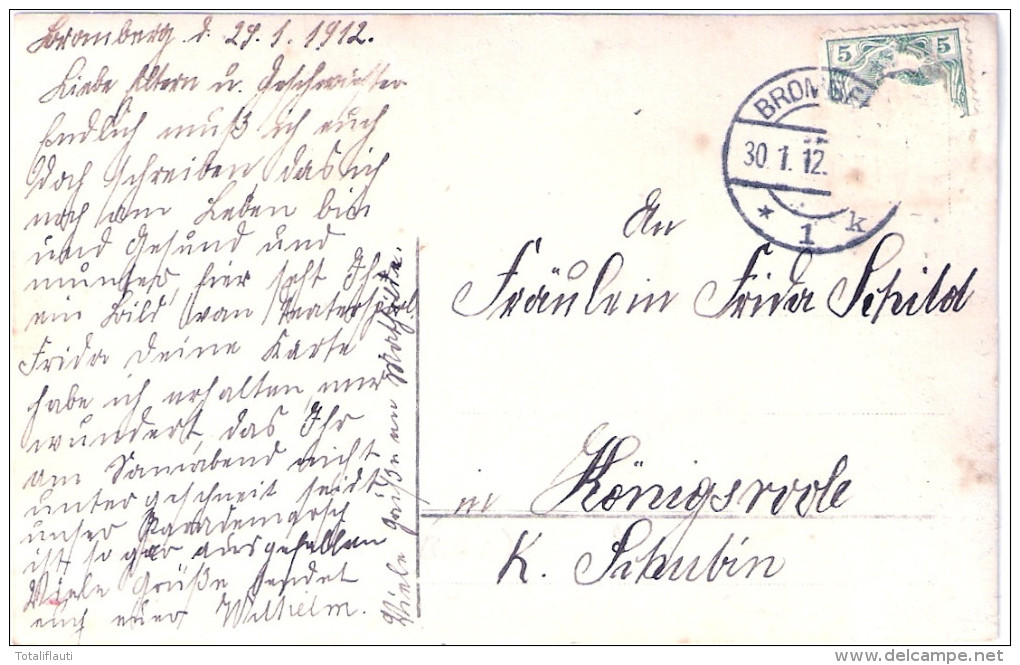 Bromberg d. 29.1.1912.
Liebe Eltern u. Geschwister
Endlich muß ich euch
doch schreiben das ich
noch am Leben bin
und Gesund und
munter, hier seht Ihr
ein Bild van
Frida deine Karte
habe ich erhalten, mir
wundert, das Ihr
am Sonnabend nicht
untergeschneit seidt
unser Parademarsch
ist so gar ausgefallen
Viele Grüße sendet
euch euer Wilhelm.
Viele Grüße an
5 5
BROMBE
30.1.12.
* 1 k
An
Fräulein Frida Schild
in Königsrode
K. Schubin
Totaliflauti
delcampe.net